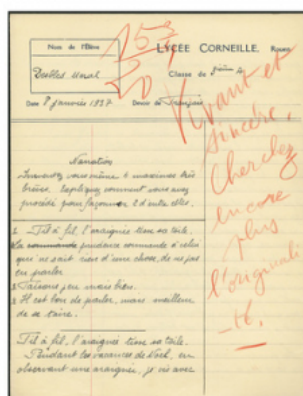 Nom de l'Élève
LYCÉE CORNEILLE, Rouen
Classe de
Date 8 janvier 1927 Devoir de Français
15
20
Vivant et
sincère.
Cherchez
encore
plus
l'originali
-té.
Narration
Inventez vous-même 6 maximes très
brèves. Expliquez comment vous avez
procédé pour façonner 2 d'entre elles.
1. Fil à fil, l'araignée tisse sa toile.
La prudence commande à celui
qui ne sait rien d'une chose, de ne pas
en parler
Faisons peu mais bien.
Il est bon de parler, mais meilleur
de se taire.
Fil à fil, l'araignée tisse sa toile.
Pendant les vacances de Noël, en
observant une araignée, je vis avec